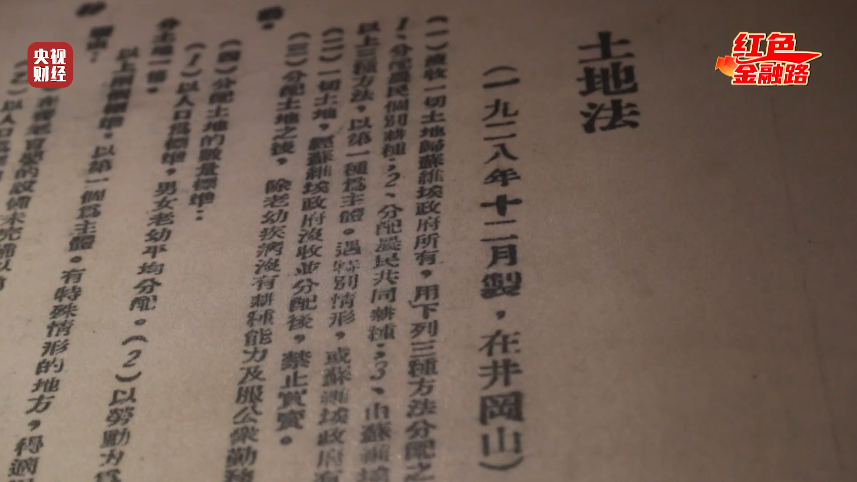 央视
财经
红色
金融路
土地法
(一九二八年十二月製，在井岡山)
(一)沒收一切土地歸蘇維埃政府所有，用下列三種方法分配之
1、分配農民個別耕種；2、分配農民共同耕種；3、由蘇維埃
以上三種方法，以第一種為主體。遇特別情形，或蘇維埃政府有
(二)一切土地，經蘇維埃政府沒收並分配後，禁止買賣。
(三)分配土地之後，除老幼疾病沒有耕種能力及服公衆勤務
(四)分配土地的數量標準：
(1)以人口為標準，男女老幼平均分配。(2)以勞動力為
分土地一倍。
以上兩個標準，以第一個為主體。有特殊情形的地方，得適
理由：
在養老育嬰的設備未完備以前
(2)以人口為